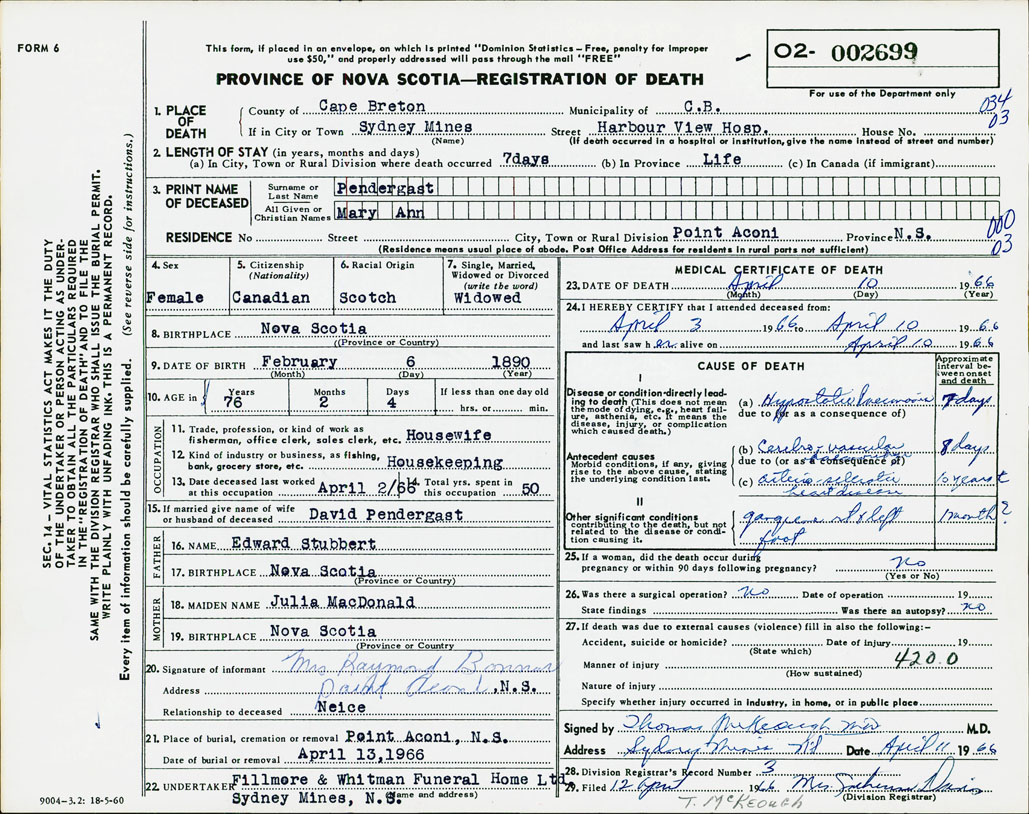 FORM 6
This form, if placed in an envelope, on which is printed "Dominion Statistics – Free, penalty for improper
use $50," and properly addressed will pass through the mail "FREE"
O2- 002699
For use of the Department only
PROVINCE OF NOVA SCOTIA—REGISTRATION OF DEATH
034
03
1. PLACE OF DEATH
County of Cape Breton Municipality of C.B.
If in City or Town Sydney Mines Street Harbour View Hosp. House No.
(Name) (If death occurred in a hospital or institution, give the name instead of street and number)
2. LENGTH OF STAY (in years, months and days)
(a) In City, Town or Rural Division where death occurred 7days (b) In Province Life (c) In Canada (if immigrant)
3. PRINT NAME OF DECEASED
Surname or Last Name Pendergast
All Given or Christian Names Mary Ann
000
03
RESIDENCE No Street City, Town or Rural Division Point Aconi Province N.S.
(Residence means usual place of abode. Post Office Address for residents in rural parts not sufficient)
4. Sex Female
5. Citizenship (Nationality) Canadian
6. Racial Origin Scotch
7. Single, Married, Widowed or Divorced (write the word) Widowed
8. BIRTHPLACE Nova Scotia
(Province or Country)
9. DATE OF BIRTH February 6 1890
(Month) (Day) (Year)
10. AGE in Years 76 Months 2 Days 4 If less than one day old hrs. or min.
OCCUPATION
11. Trade, profession, or kind of work as
fisherman, office clerk, sales clerk, etc. Housewife
12. Kind of industry or business, as fishing,
bank, grocery store, etc. Housekeeping
13. Date deceased last worked at this occupation April 2/66
14. Total yrs. spent in this occupation 50
15. If married give name of wife
or husband of deceased David Pendergast
FATHER
16. NAME Edward Stubbert
17. BIRTHPLACE Nova Scotia
(Province or Country)
MOTHER
18. MAIDEN NAME Julia MacDonald
19. BIRTHPLACE Nova Scotia
(Province or Country)
20. Signature of informant Mrs Raymond
Address Point Aconi, N.S.
Relationship to deceased Neice
21. Place of burial, cremation or removal Point Aconi, N.S.
Date of burial or removal April 13,1966
22. UNDERTAKER Fillmore & Whitman Funeral Home Ltd.
Sydney Mines, N.S.
(Name and address)
MEDICAL CERTIFICATE OF DEATH
23. DATE OF DEATH April 10 1966
(Month) (Day) (Year)
24. I HEREBY CERTIFY that I attended deceased from:
April 3 1966 to April 10 1966
and last saw her alive on April 10 1966
CAUSE OF DEATH
Approximate interval between onset and death
I
Disease or condition directly leading to death (This does not mean
the mode of dying, e.g., heart failure, asthenia, etc. It means the
disease, injury, or complication
which caused death.)
(a) Hypostatic Pneumonia 7 days
due to (or as a consequence of)
Antecedent causes
Morbid conditions, if any, giving
rise to the above cause, stating
the underlying condition last.
(b) Cerebro-vascular 8 days
due to (or as a consequence of)
(c) arterio-sclerotic 10 years
heart disease
II
Other significant conditions
contributing to the death, but not
related to the disease or condition causing it.
gangrene of left 1 month?
foot
25. If a woman, did the death occur during
pregnancy or within 90 days following pregnancy? No
(Yes or No)
26. Was there a surgical operation? No Date of operation 19
State findings Was there an autopsy? No
27. If death was due to external causes (violence) fill in also the following:-
Accident, suicide or homicide? Date of injury 19
(State which)
420.0
Manner of injury
(How sustained)
Nature of injury
Specify whether injury occurred in industry, in home, or in public place
Signed by Thomas McKeough MD M.D.
Address Sydney Mines NS Date April 11 1966
28. Division Registrar's Record Number 3
29. Filed 12 April 1966 Mrs.
(Division Registrar)
T. McKEOUGH
SEC. 14 – VITAL STATISTICS ACT MAKES IT THE DUTY
OF THE UNDERTAKER OR PERSON ACTING AS UNDER-
TAKER TO OBTAIN ALL THE PARTICULARS REQUIRED
IN THE "REGISTRATION OF DEATH" AND TO FILE THE
SAME WITH THE DIVISION REGISTRAR WHO SHALL ISSUE THE BURIAL PERMIT.
WRITE PLAINLY WITH UNFADING INK. THIS IS A PERMANENT RECORD.
Every item of information should be carefully supplied. (See reverse side for instructions.)
9004-3.2: 18-5-60